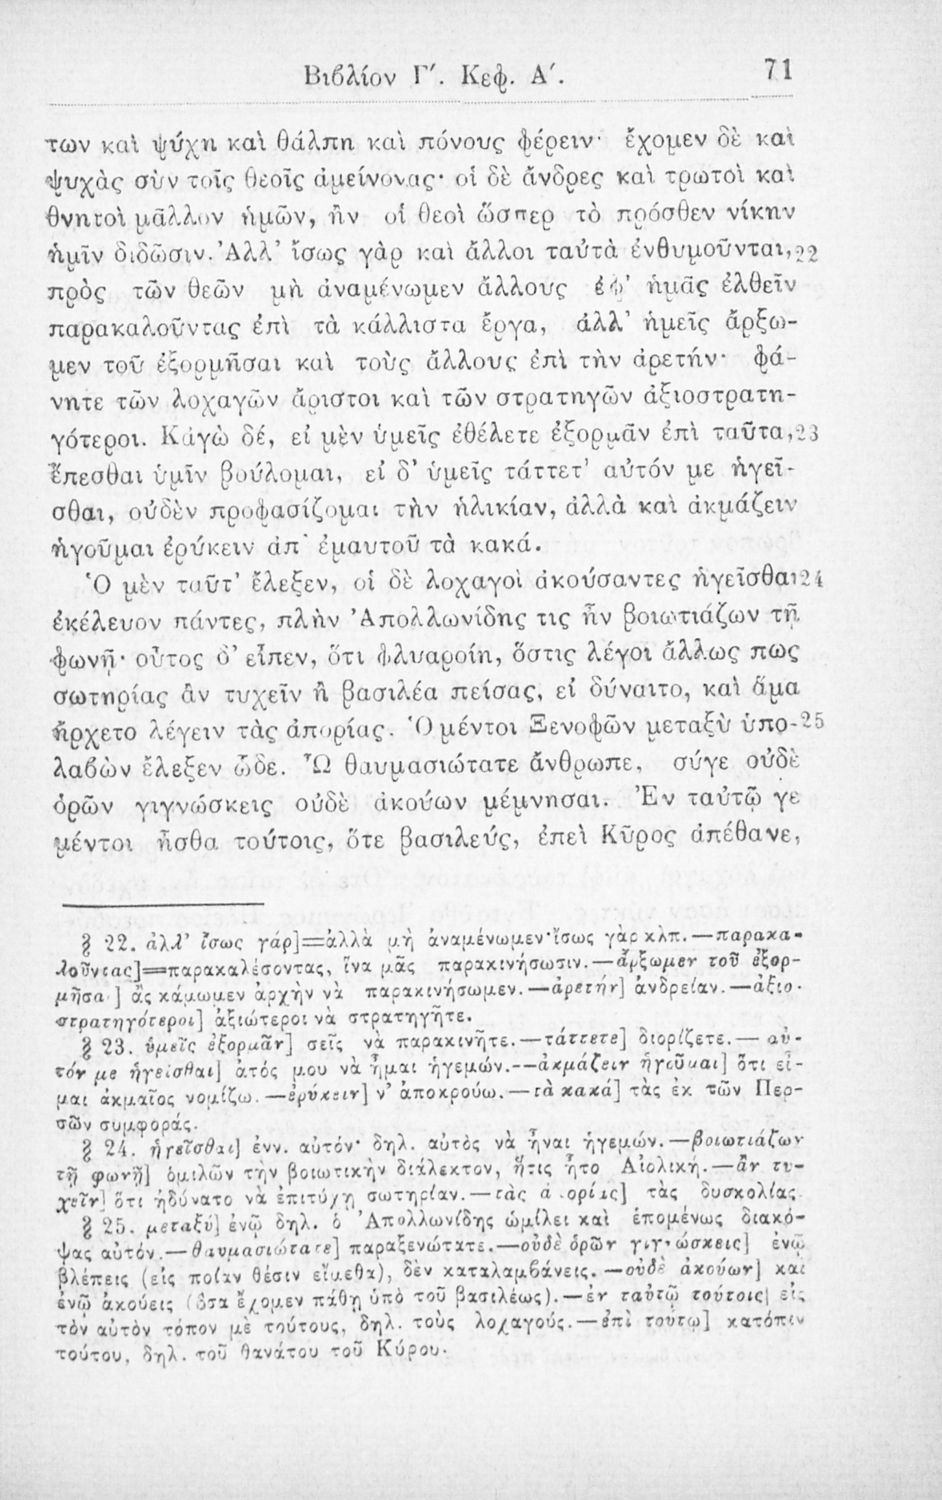 Βιβλίον Γ΄. Κεφ. Α΄. 71
των καὶ ψύχη καὶ θάλπη καὶ πόνους φέρειν· ἔχομεν δὲ καὶ
ψυχὰς σὺν τοῖς θεοῖς ἀμείνονας· οἱ δὲ ἄνδρες καὶ τρωτοὶ καὶ
θνητοὶ μᾶλλον ἡμῶν, ἢν οἱ θεοὶ ὥσπερ τὸ πρόσθεν νίκην
ἡμῖν διδῶσιν. Ἀλλ' ἴσως γὰρ καὶ ἄλλοι ταὐτὰ ἐνθυμοῦνται, 22
πρὸς τῶν θεῶν μὴ ἀναμένωμεν ἄλλους ἐφ' ἡμᾶς ἐλθεῖν
παρακαλοῦντας ἐπὶ τὰ κάλλιστα ἔργα, ἀλλ' ἡμεῖς ἄρξω-
μεν τοῦ ἐξορμῆσαι καὶ τοὺς ἄλλους ἐπὶ τὴν ἀρετήν· φά-
νητε τῶν λοχαγῶν ἄριστοι καὶ τῶν στρατηγῶν ἀξιοστρατη-
γότεροι. Κἀγὼ δέ, εἰ μὲν ὑμεῖς ἐθέλετε ἐξορμᾶν ἐπὶ ταῦτα, 23
ἕπεσθαι ὑμῖν βούλομαι, εἰ δ' ὑμεῖς τάττετ' αὐτόν με ἡγεῖ-
σθαι, οὐδὲν προφασίζομαι τὴν ἡλικίαν, ἀλλὰ καὶ ἀκμάζειν
ἡγοῦμαι ἐρύκειν ἀπ' ἐμαυτοῦ τὰ κακά.
Ὁ μὲν ταῦτ' ἔλεξεν, οἱ δὲ λοχαγοὶ ἀκούσαντες ἡγεῖσθαι 24
ἐκέλευον πάντες, πλὴν Ἀπολλωνίδης τις ἦν βοιωτιάζων τῇ
φωνῇ· οὗτος δ' εἶπεν, ὅτι φλυαροίη, ὅστις λέγοι ἄλλως πως
σωτηρίας ἂν τυχεῖν ἢ βασιλέα πείσας, εἰ δύναιτο, καὶ ἅμα
ἤρχετο λέγειν τὰς ἀπορίας. Ὁ μέντοι Ξενοφῶν μεταξὺ ὑπο- 25
λαβὼν ἔλεξεν ὧδε. Ὦ θαυμασιώτατε ἄνθρωπε, σύγε οὐδὲ
ὁρῶν γιγνώσκεις οὐδὲ ἀκούων μέμνησαι. Ἐν ταὐτῷ γε
μέντοι ἦσθα τούτοις, ὅτε βασιλεύς, ἐπεὶ Κῦρος ἀπέθανε,
§ 22. ἀλλ' ἴσως γάρ]=ἀλλὰ μὴ ἀναμένωμεν· ἴσως γὰρ κλπ.—παρακα-
λοῦντας]=παρακαλέσοντας, ἵνα μᾶς παρακινήσωσιν.—ἄρξωμεν τοῦ ἐξορ-
μῆσαι] ἂς κάμωμεν ἀρχὴν νὰ παρακινήσωμεν.—ἀρετήν] ἀνδρείαν.—ἀξιο-
στρατηγότεροι] ἀξιώτεροι νὰ στρατηγῆτε.
§ 23. ὑμεῖς ἐξορμᾶν] σεῖς νὰ παρακινῆτε.—τάττετε] διορίζετε.—αὐ-
τόν με ἡγεῖσθαι] ἀτός μου νὰ ἦμαι ἡγεμών.—ἀκμάζειν ἡγοῦμαι] ὅτι εἶ-
μαι ἀκμαῖος νομίζω.—ἐρύκειν] ν' ἀποκρούω.—τὰ κακά] τὰς ἐκ τῶν Περ-
σῶν συμφοράς.
§ 24. ἡγεῖσθαι] ἐνν. αὐτόν· δηλ. αὐτὸς νὰ ἦναι ἡγεμών.—βοιωτιάζων
τῇ φωνῇ] ὁμιλῶν τὴν βοιωτικὴν διάλεκτον, ἥτις ἦτο Αἰολική.—ἂν τυ-
χεῖν] ὅτι ἠδύνατο νὰ ἐπιτύχῃ σωτηρίαν.—τὰς ἀπορίας] τὰς δυσκολίας.
§ 25. μεταξύ] ἐνῷ δηλ. ὁ Ἀπολλωνίδης ὡμίλει καὶ ἑπομένως διακό-
ψας αὐτόν.—θαυμασιώτατε] παραξενώτατε.—οὐδὲ ὁρῶν γιγνώσκεις] ἐνῷ
βλέπεις (εἰς ποίαν θέσιν εἴμεθα), δὲν καταλαμβάνεις.—οὐδὲ ἀκούων] καὶ
ἐνῷ ἀκούεις (ὅσα ἔχομεν πάθῃ ὑπὸ τοῦ βασιλέως).—ἐν ταὐτῷ τούτοις] εἰς
τὸν αὐτὸν τόπον μὲ τούτους, δηλ. τοὺς λοχαγούς.—ἐπὶ τούτῳ] κατόπιν
τούτου, δηλ. τοῦ θανάτου τοῦ Κύρου.